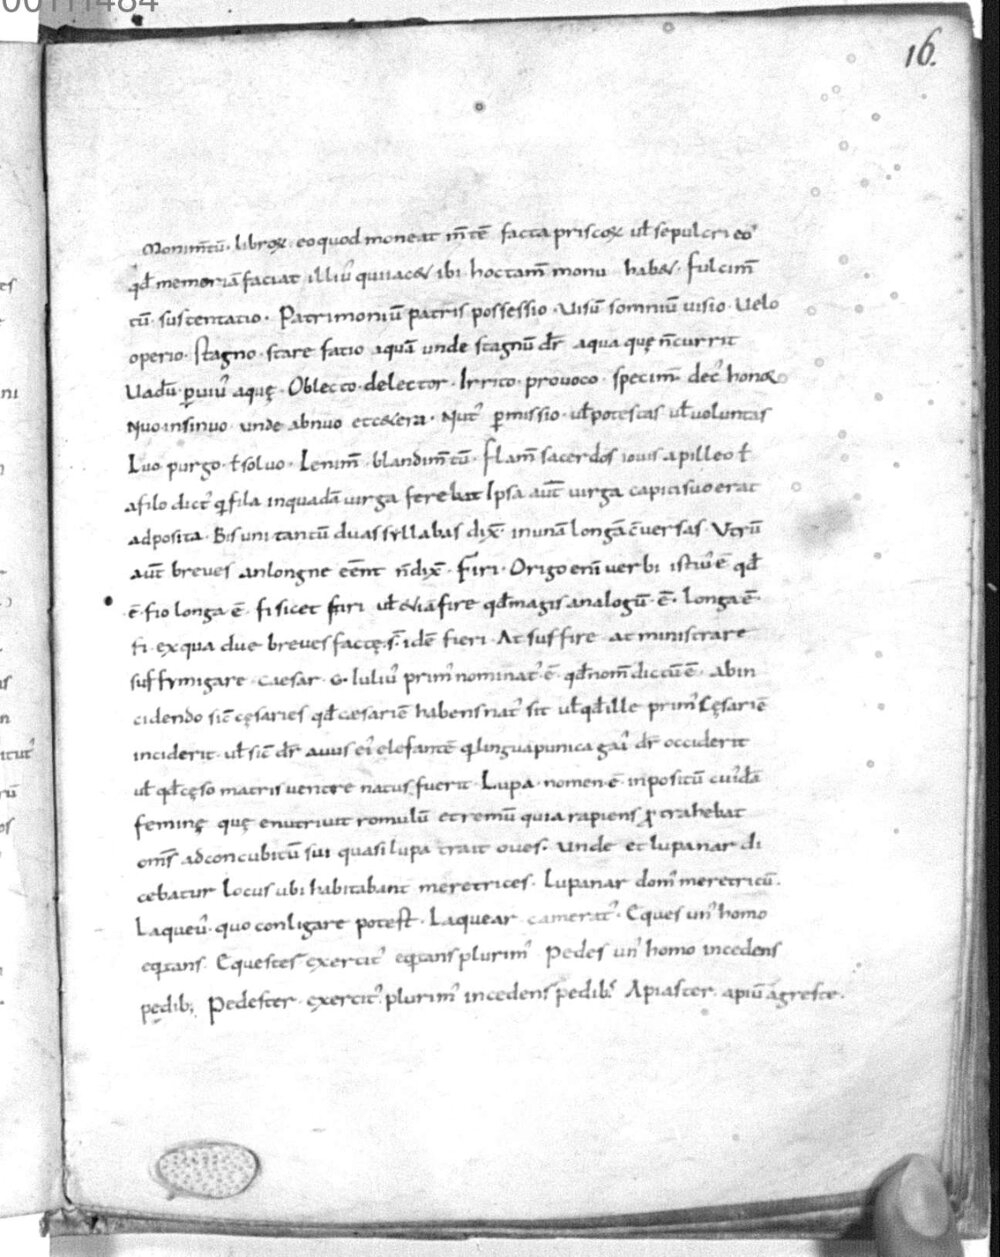 00111484
16.
Monim̄tū. libroꝝ. eo quod moneat m̄tē facta priscoꝝ ul̄ sepulcri eo
qd̄ memoriā faciat illiuꝰ qui iacet ibi. hoc tam̄ monu habet. fulcim̄
tū. sustentatio. Patrimoniū patris possessio. Uisū somniū uisio. Uelo
operio. Stagno. stare facio aquā unde stagnū dr̄ aqua quę n̄ currit
Uadū. ꝑuiuꝰ aquę. Oblecto. delector. Irrito. prouoco. specim̄. decꝰ honor
Nuo insinuo. unde abnuo etcetera. Nutꝰ ꝑmissio. ul̄ potestas ul̄ uoluntas
Luo purgo. ł soluo. Lenim̄. blandim̄tū. Flam̄ sacerdos iouis a pilleo ł
a filo dictꝰ q fila in quadā uirga ferebat Ipsa aut̄ uirga capiti suo erat
adposita. Bis uni. tantū duas syllabas dix̄. in unā longā c̄uersas. Utrū
aut̄ breues an longne eēnt n̄ dix̄. Firi. Origo eni uerbi istiuꝰ ē qd̄
ē. fio longa ē. fi sicet firi ul̄ etiā fire qd̄ magis analogū. ē. longa ē.
fi. ex qua due breues factę s̄. idē fieri. At suffire at ministrare
suffymigare. Caesar. G. Iuliuꝰ primꝰ nominatꝰ. ē. qd̄ nom̄ dictū ē. ab in
cidendo sic̄ cęsaries qd̄ cæsariē habens natꝰ sit ul̄ qd̄ ille primꝰ cęsariē
inciderit. ul̄ sic̄ dr̄ auus eiꝰ elefantē q lingua punica gai dr̄ occiderit
ul̄ qd̄ cęso matris uentre natus fuerit. Lupa. nomen. ē. inpositū cuidā
feminę quę enutriuit romulū et remū quia rapiens ꝓtrahebat
om̄s ad concubitū sui quasi lupa trait oues. Unde et lupanar di
cebatur locus ubi habitabant meretrices. Lupanar domꝰ meretricū.
Laqueuꝰ. quo conligare potest. Laquear cameratꝰ. Eques unꝰ homo
eqtans. Equestes exercitꝰ eqtans plurimꝰ Pedes unꝰ homo incedens
pedib; Pedester. exercitꝰ plurimꝰ incedens pedibꝰ Apiaster. apiū agreste.